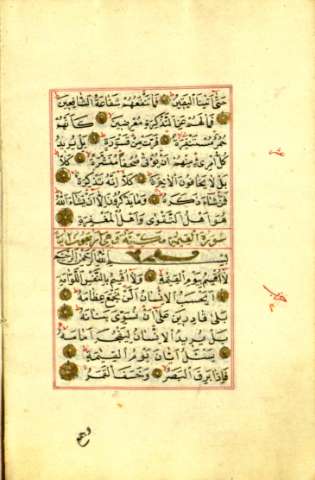 حَتّٰى اَتٰينَا الْيَقِينُ فَمَا تَنْفَعُهُمْ شَفَاعَةُ الشَّافِعِينَ
فَمَا لَهُمْ عَنِ التَّذْكِرَةِ مُعْرِضِينَ كَاَنَّهُمْ
حُمُرٌ مُسْتَنْفِرَةٌ فَرَّتْ مِنْ قَسْوَرَةٍ بَلْ يُرِيدُ
كُلُّ امْرِئٍ مِنْهُمْ اَنْ يُؤْتٰى صُحُفًا مُنَشَّرَةً كَلَّا
بَلْ لَا يَخَافُونَ الْاٰخِرَةَ كَلَّا اِنَّهُ تَذْكِرَةٌ
فَمَنْ شَاءَ ذَكَرَهُ وَمَا يَذْكُرُونَ اِلَّا اَنْ يَشَاءَ اللّٰهُ
هُوَ اَهْلُ التَّقْوٰى وَاَهْلُ الْمَغْفِرَةِ
سورة القيمة مكية وهى اربعون اية
بِسْمِ اللّٰهِ الرَّحْمٰنِ الرَّحِيمِ
لَا اُقْسِمُ بِيَوْمِ الْقِيٰمَةِ وَلَا اُقْسِمُ بِالنَّفْسِ اللَّوَّامَةِ
اَيَحْسَبُ الْاِنْسَانُ اَلَّنْ نَجْمَعَ عِظَامَهُ
بَلٰى قَادِرِينَ عَلٰى اَنْ نُسَوِّىَ بَنَانَهُ
بَلْ يُرِيدُ الْاِنْسَانُ لِيَفْجُرَ اَمَامَهُ
يَسْئَلُ اَيَّانَ يَوْمُ الْقِيٰمَةِ
فَاِذَا بَرِقَ الْبَصَرُ وَخَسَفَ الْقَمَرُ